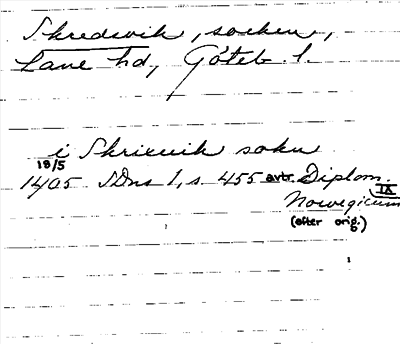 Skredsvik, socken,
Lane hd, Göteb. l.
i Skrixuik sokn
18/5
1405 SDns 1, s 455 avtr. Diplom.
Norwegicum IX
(efter orig.)